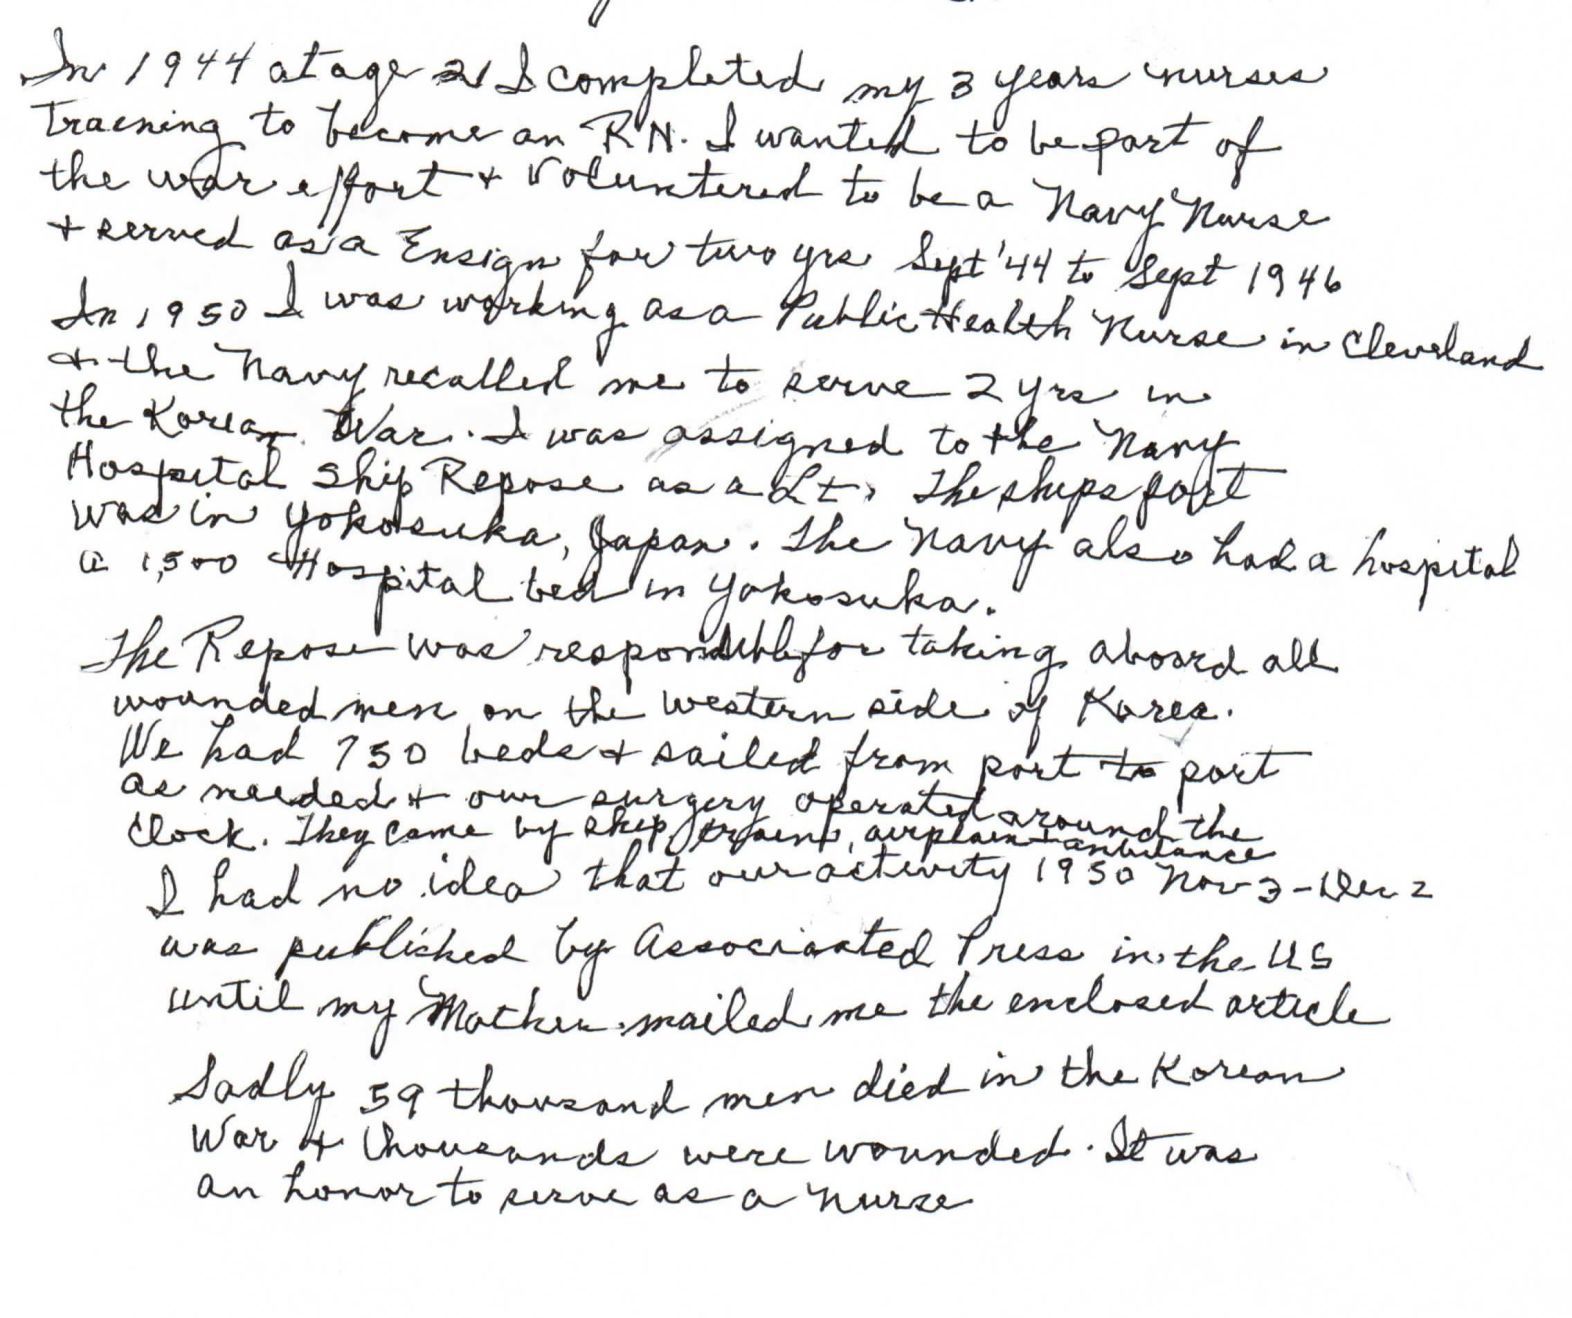 In 1944 at age 21 I completed my 3 years nurses
Training to become an RN. I wanted to be part of
the war effort + Voluntered to be a Navy Nurse
+ served as a Ensign for two yrs Sept '44 to Sept 1946
In 1950 I was working as a Public Health Nurse in Cleveland
+ the Navy recalled me to serve 2 yrs in
the Korean War. I was assigned to the Navy
Hospital Ship Repose as a Lt. The ships port
was in Yokosuka, Japan. The Navy also had a hospital
1,500 Hospital bed in Yokosuka.
The Repose was responsible for taking aboard all
wounded men on the western side of Korea.
We had 750 beds + sailed from port to port
as needed + our surgery operated around the
clock. They came by ship, train, airplain + ambulance
I had no idea that our activity 1950 Nov 3 - Dec 2
was published by Associated Press in the US
until my Mother mailed me the enclosed article
Sadly 59 thousand men died in the Korean
War + thousands were wounded. It was
an honor to serve as a nurse